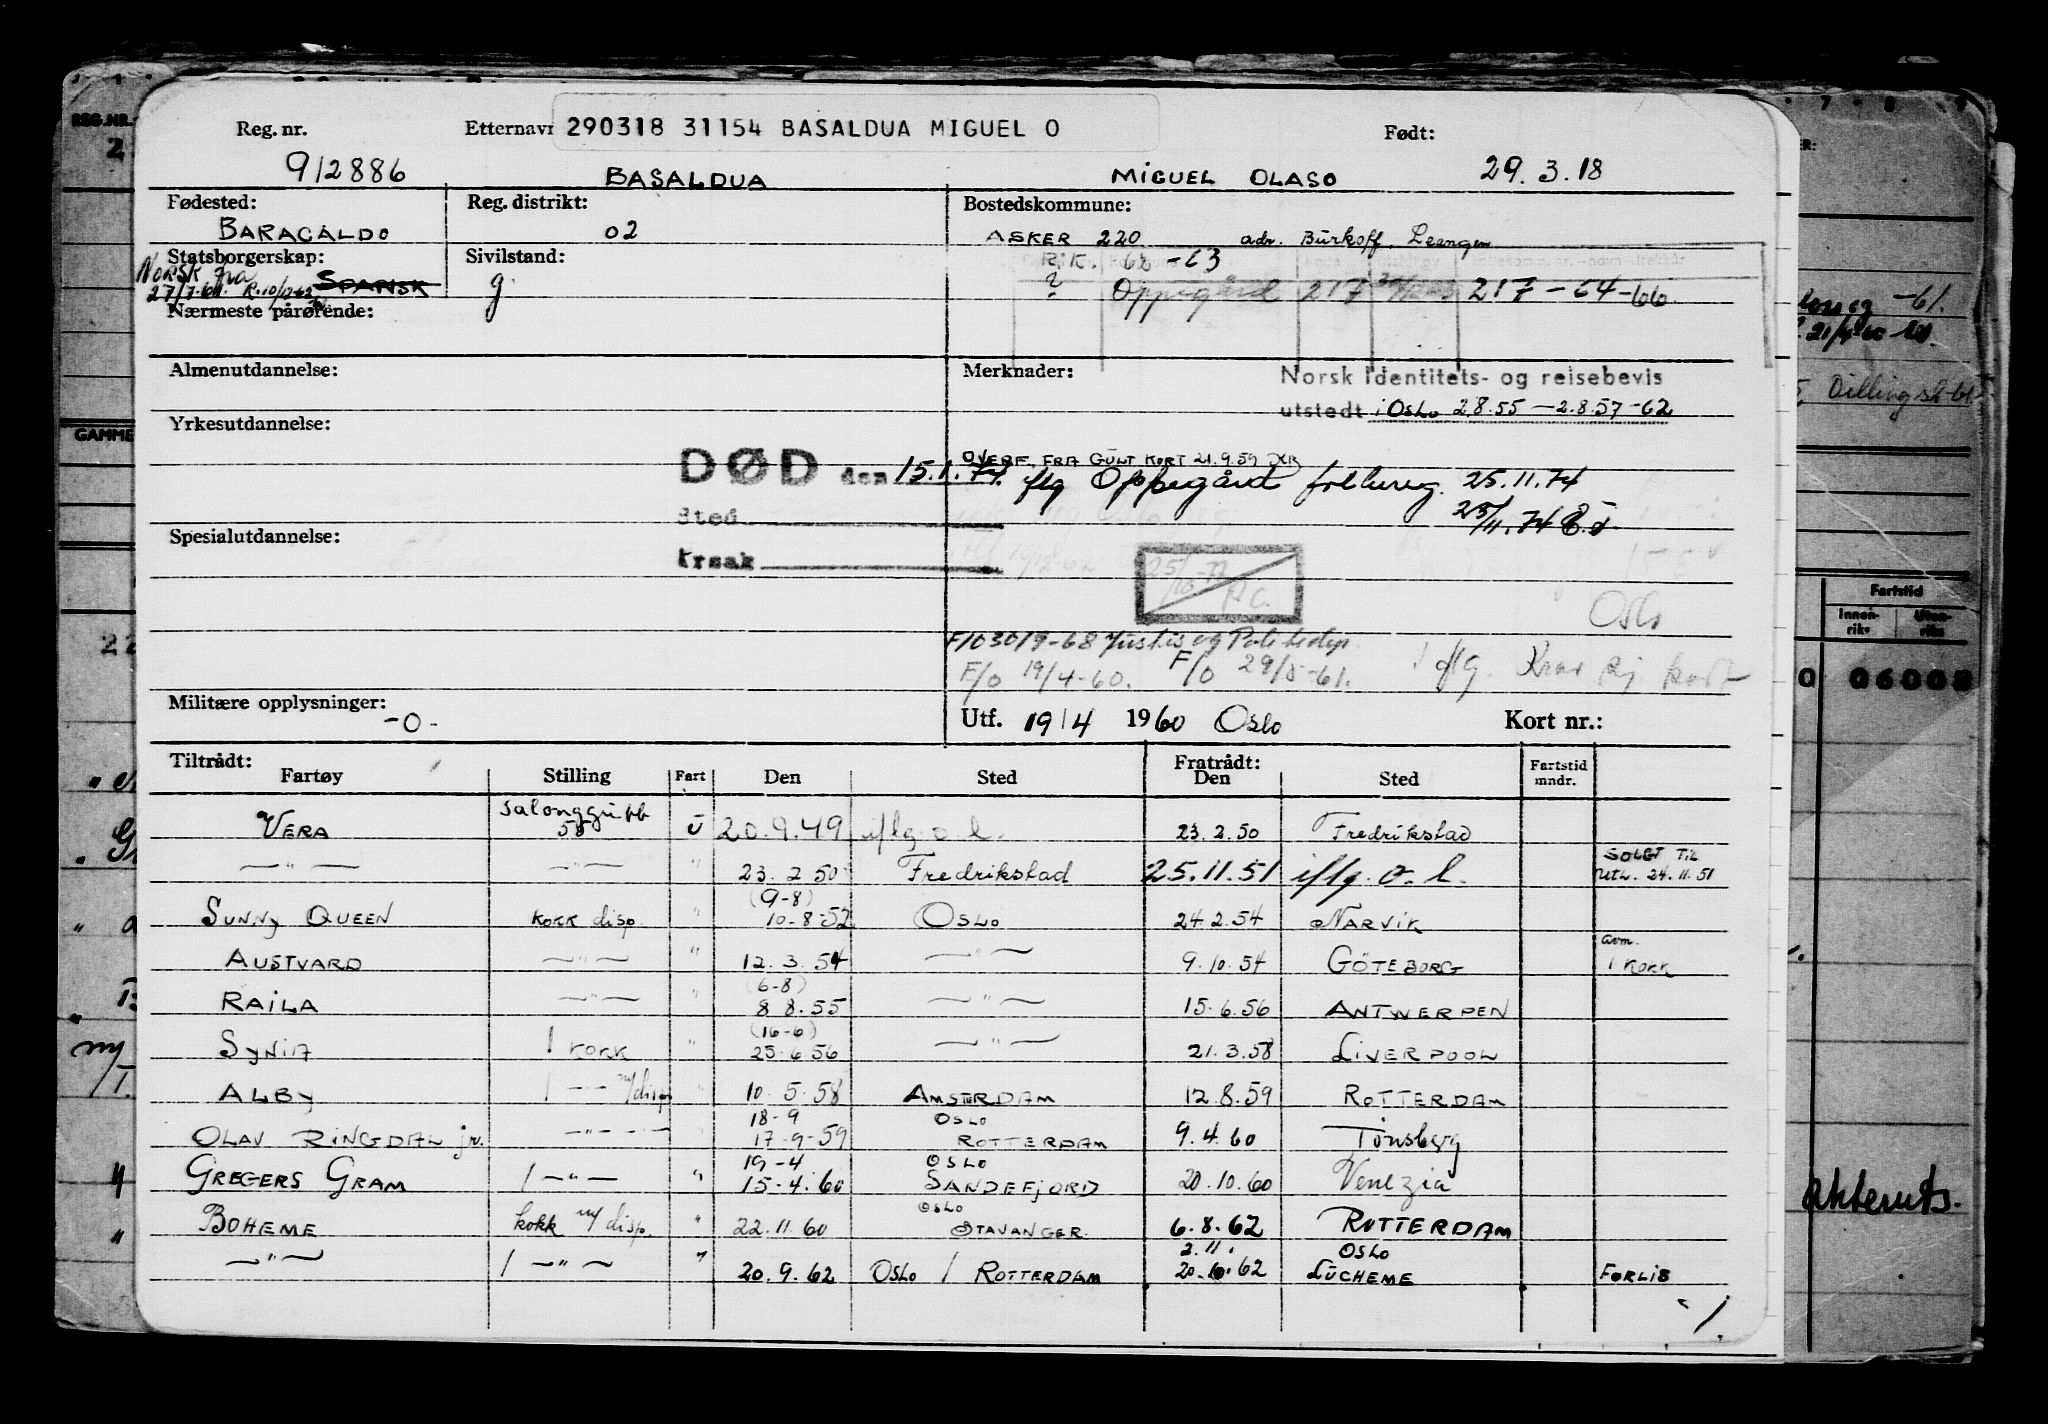 Reg. nr. Etternavn 290318 31154 BASALDUA MIGUEL O Født:
912886 BASALDUA MIGUEL OLASO 29.3.18
Fødested: Reg. distrikt: Bostedskommune:
BARACALDO 02 ASKER 220 adr. Burkoff, Leangen
Statsborgerskap: Sivilstand: R.K. 62-63
NORSK fra SPANSK g ? Oppegård 217 217-64-66
Nærmeste pårørende:
Almenutdannelse: Merknader: Norsk identitets- og reisebevis
utstedt i Oslo 2.8.55 - 2.8.57 - 62
Yrkesutdannelse:
OVERF. FRA GULT KORT 21.9.59
DØD den 15.1.74. iflg Oppegård folkereg. 25.11.74
Sted 25/11.74
Spesialutdannelse:
Årsak 25/10-77
Oslo
F/O 30/9-68 Justis og
F/O 19/4-60. F/O 29/5-61. iflg.
Militære opplysninger: -0- Utf. 19/4 1960 Oslo Kort nr.:
Tiltrådt: Fratrådt:
Fartøy Stilling Fart Den Sted Den Sted Fartstid mndr.
VERA salonggutt U 20.9.49 iflg. o.l. 23.2.50 Fredrikstad
—"— —"— " 23.2.50 Fredrikstad 25.11.51 iflg. o.l. SOLGT TIL utl. 24.11.51
(9-8)
SUNNY QUEEN KOKK disp. " 10-8-52 OSLO 24.2.54 NARVIK
AUSTVARD —"— " 12.3.54 —"— 9.10.54 GÖTEBORG avm. 1 KOKK
(6-8)
RAILA —"— " 8.8.55 —"— 15.6.56 ANTWERPEN
(16-6)
SYNIA 1 KOKK " 25.6.56 —"— 21.3.58 LIVERPOOL
ALBY 1 —"— m/disp " 10.5.58 AMSTERDAM 12.8.59 ROTTERDAM
18-9 OSLO
OLAV RINGDAL jr. —"— 17-9-59 ROTTERDAM 9.4.60 Tønsberg
19-4 OSLO
GREGERS GRAM 1 —"— " 15.4.60 SANDEFJORD 20.10.60 Venezia
OSLO
BOHEME kokk m/disp. " 22.11.60 STAVANGER. 6.8.62 ROTTERDAM
2.11. OSLO
—"— 1 —"— " 20.9.62 OSLO / ROTTERDAM 20.10.62 LUCHEME FORLIS
Fartstid
Innen-riks Uten-riks
akteruts.